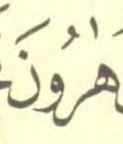 هَٰرُونَ